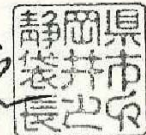 静岡県
袋井市
長之印